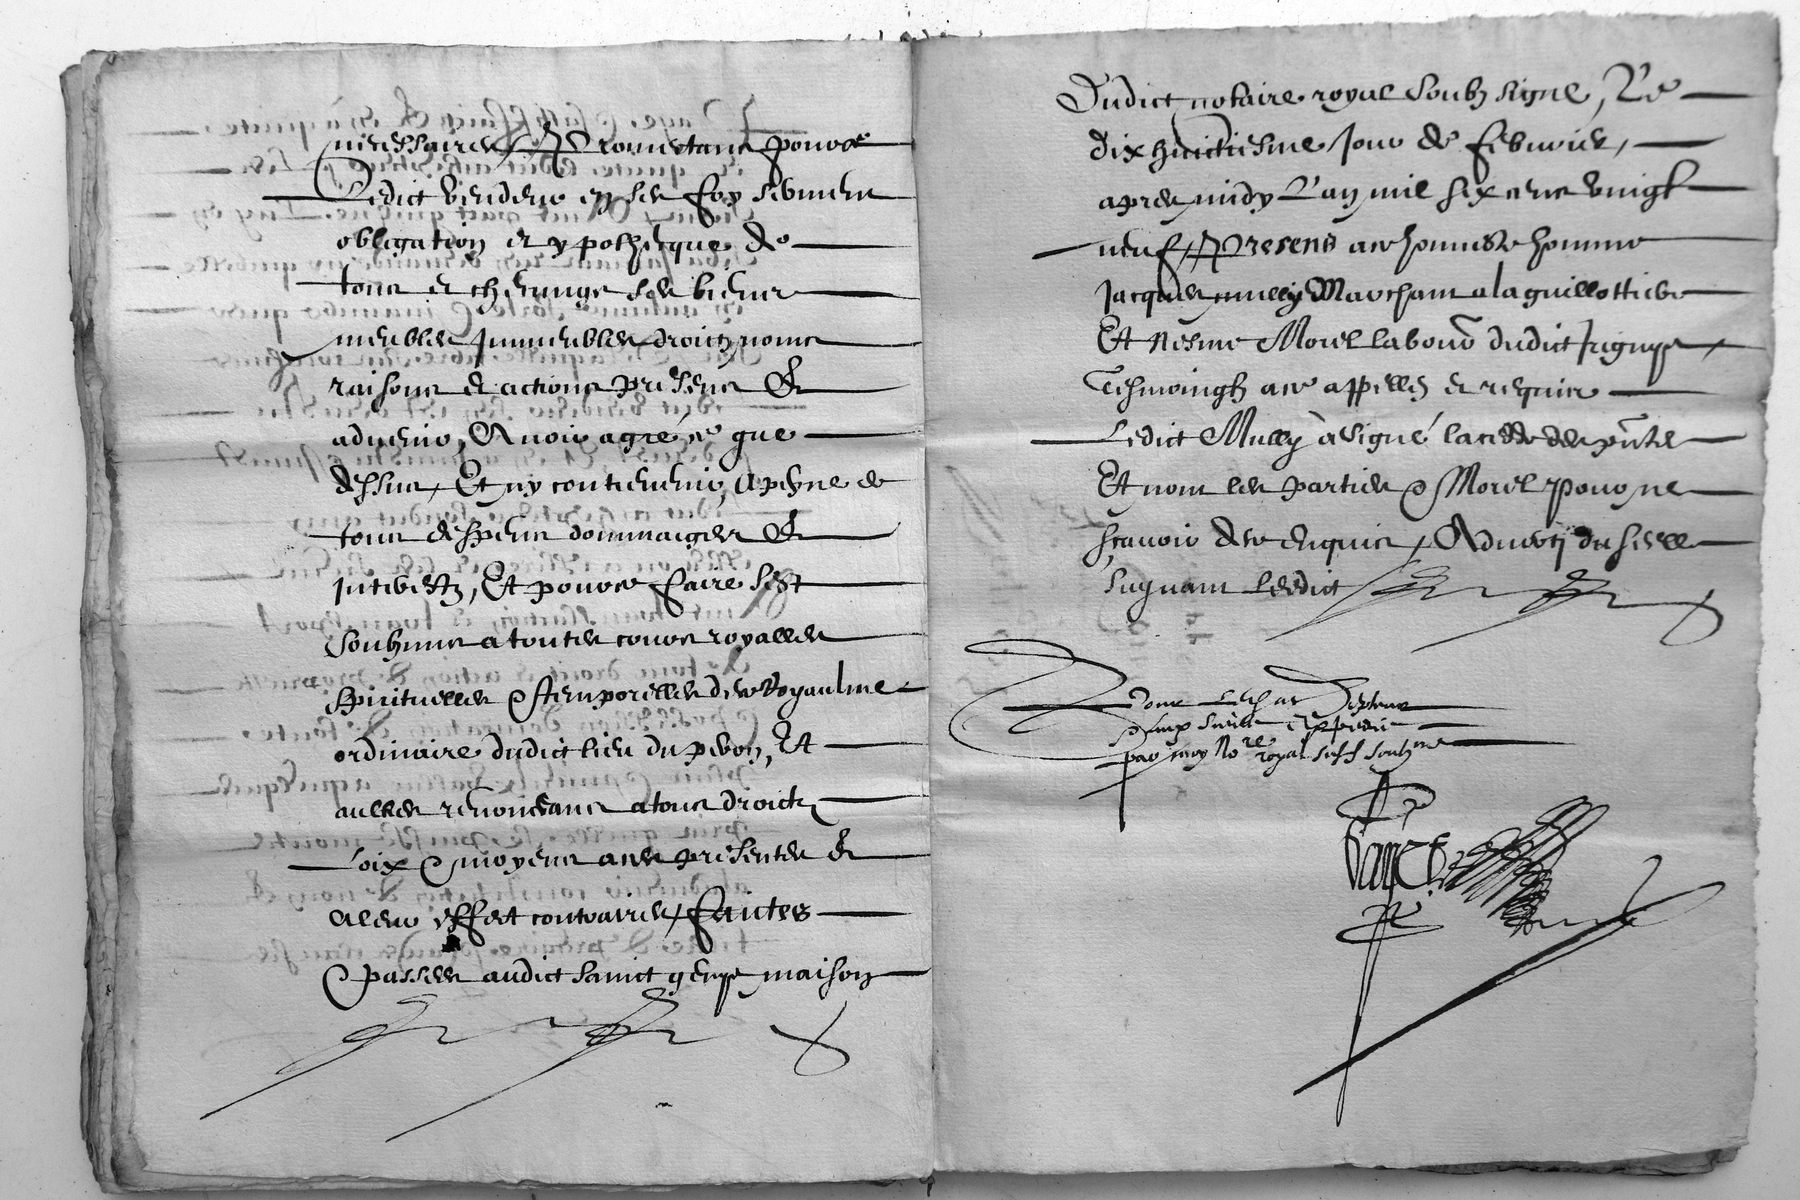 necessaires, Promectant pour ce
Ledict vendeur en ses foy serment
obligation et ypothecque de
tous et chescungs ses biens
meubles Immeubles droitz noms
raisons et actions presens et
advenir, Avoir agré ce que
dessus, Et ny contrevenir, A peyne de
tous despens dommaiges et
Interestz, Et pour ce faire sest
soubzmis a toutes cours royalles
spirituelles et temporelles de ce Royaulme
ordinaire dudict lieu du peron, Et
aultres renonceans a tous droictz
Loix et moyens a ces presentes et
a leur effect contraires, Faictes
et passees audict sainct genys maison
Dudict notaire royal soubzsigne, Le
dix huictiesme Jour de febvrier,
apres midy L'an mil six cens vingt
neuf, Presens a ce honneste homme
Jacques mully Marchant a la guillottiere
Et Nesme Morel labour dudict Irigny,
Tesmoingtz a ce appellez et requis
Ledict Mully à signé la cedde des pntes
Et non les parties et Morel pour ne
scavoir de ce enquis, Adverti du seelle
suyvant Leedict
par moy No.re royal